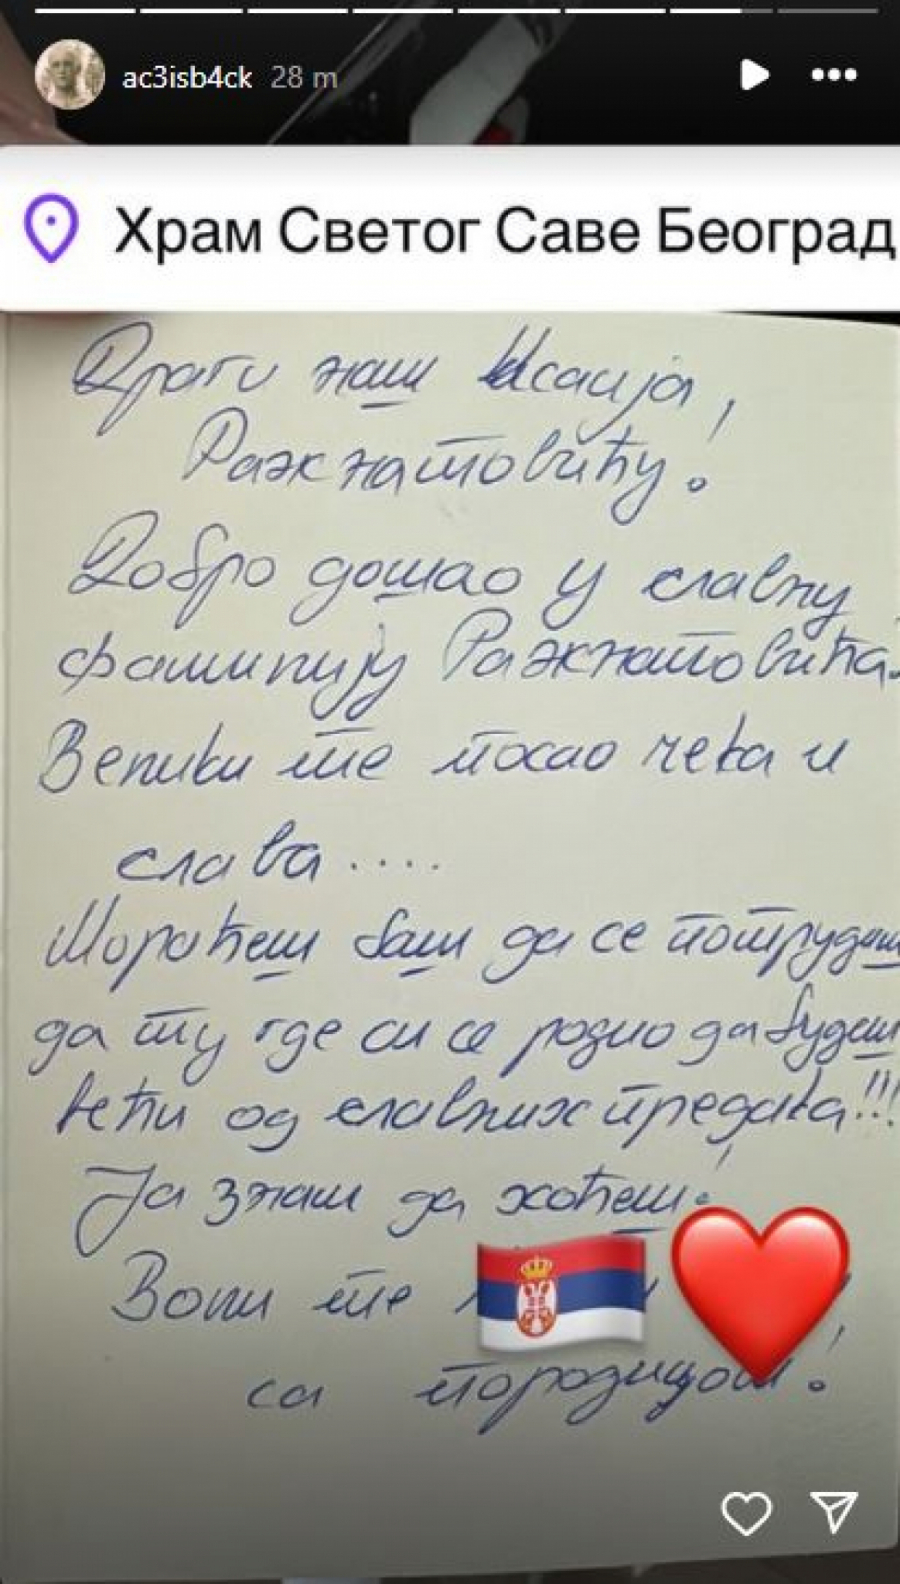 ac3isb4ck 28 m
Храм Светог Саве Београд
Драги наш Исаија,
Ражнатовићу!
Добро дошао у славну
фамилију Ражнатовића.
Велики те посао чека и
слава....
Мораћеш баш да се потрудиш
да ту где си се родио да будеш
већи од славних предака!!!
Ја знам да хоћеш!
Воли те
са породицом!